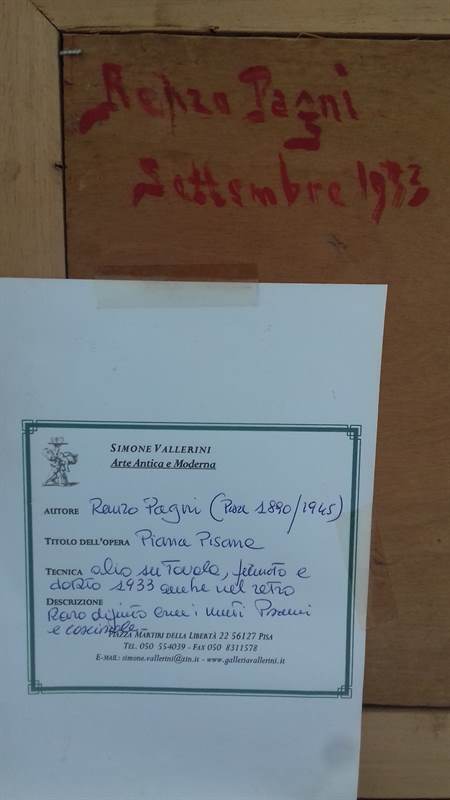 Renzo Pagni
Settembre 1933
SIMONE VALLERINI
Arte Antica e Moderna
AUTORE Renzo Pagni (Pisa 1890/1945)
TITOLO DELL'OPERA Piana Pisana
TECNICA olio su tavola, firmato e
datato 1933 anche nel retro
DESCRIZIONE
Raro dipinto con i monti Pisani
e
PIAZZA MARTIRI DELLA LIBERTÀ 22 56127 PISA
TEL. 050 554039 - FAX 050 8311578
E-MAIL: simone.vallerini@tin.it - www.galleriavallerini.it